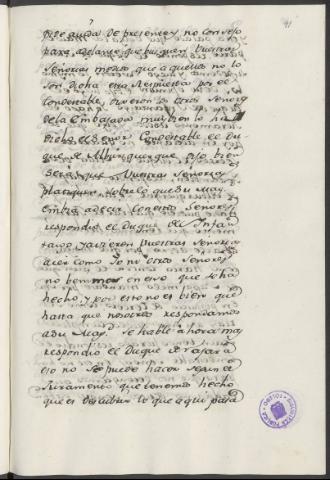 pide ayuda de presente, y no consejo
para adelante que busquen Vuestras
Señorias medio, que aquellos no lo
son dicha esta Respuesta por el
Condestable, dixeron los otros Señores
de la Embajada muy bien lo ha
dicho el Señor Condestable el Du
que de Alburquerque dijo bien
Será que Vuestras Señorias
platiquen sobre lo que Su Mag.
embia a decir con estos Señores
respondio el Duque del Infan
tado ya vieron Vuestras Señorias
acer como Yo ni otros Señores
no benimos en eso que se ha
hecho, y por esto no es bien que
hasta que nosotros respondamos
a Su Mag. se hable ahora mas
respondio el Duque de Bajara
eso no Se puede hacer Segun el
Juramento que tenemos hecho
que es descubrir lo que aqui pasa
91
BIBLIOTECA PUBLICA
TOLEDO